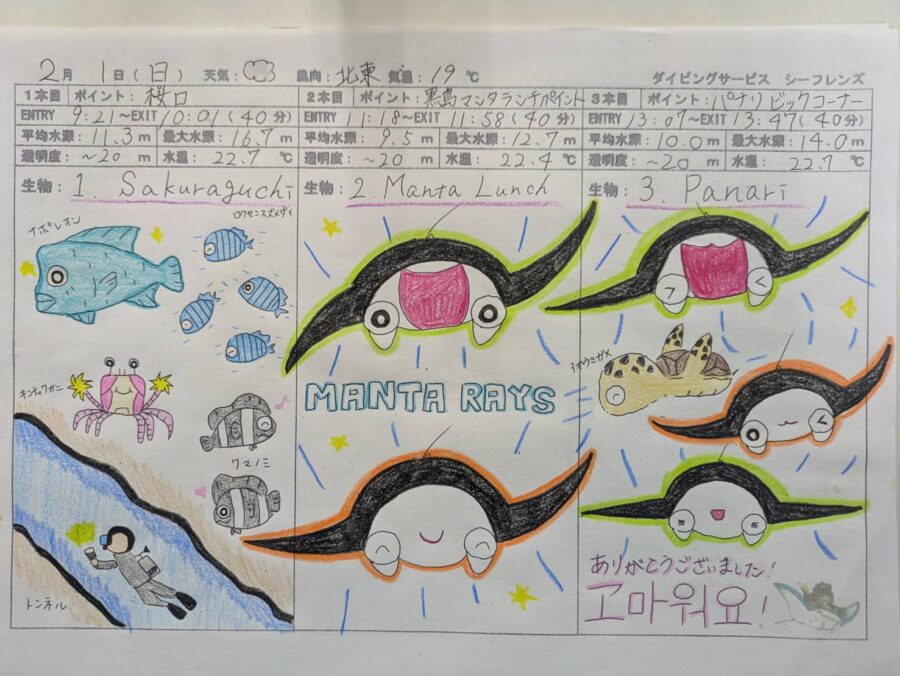 2月 1日(日) 天気: 風向:北東 気温:19℃ ダイビングサービス シーフレンズ
1本目 ポイント:桜口
ENTRY 9:21~EXIT 10:01(40分)
平均水深:11.3m 最大水深:16.7m
透明度:~20m 水温:22.7℃
生物:1. Sakuraguchi
ナポレオン
ロクセンスズメダイ
キンチャクガニ
クマノミ
トンネル
2本目 ポイント:黒島マンタランチポイント
ENTRY 11:18~EXIT 11:58(40分)
平均水深:9.5m 最大水深:12.7m
透明度:~20m 水温:22.4℃
生物:2. Manta Lunch
MANTA RAYS
3本目 ポイント:パナリビックコーナー
ENTRY 13:07~EXIT 13:47(40分)
平均水深:10.0m 最大水深:14.0m
透明度:~20m 水温:22.7℃
生物:3. Panari
アオウミガメ
ありがとうございました!
고마워요!